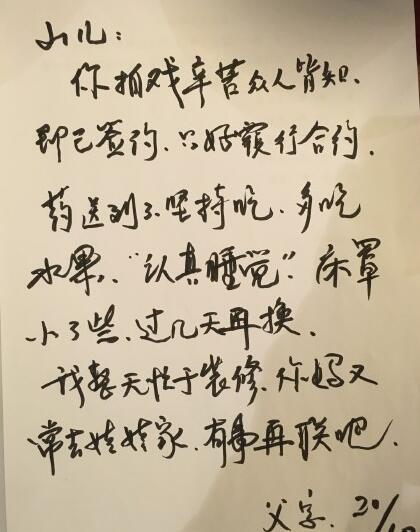 山儿：
你拍戏辛苦众人皆知、
即已签约、只好履行合约、
药送到了、坚持吃、多吃
水果、“认真睡觉”、床罩
小了些、过几天再换、
我整天忙于装修、你妈又
常去娃娃家、有事再联吧、
父字、20/10